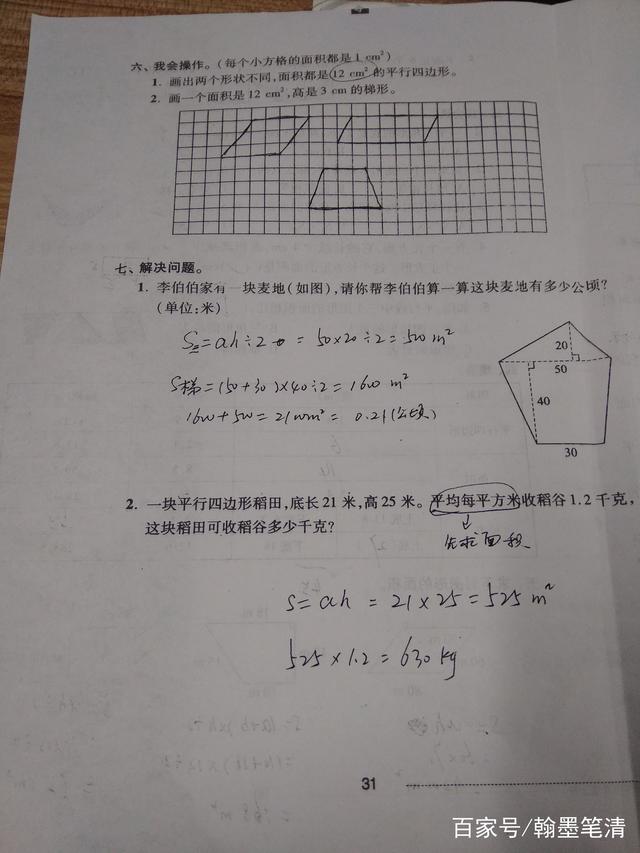 六、我会操作。(每个小方格的面积都是1 cm²)
1. 画出两个形状不同,面积都是12 cm²的平行四边形。
2. 画一个面积是12 cm²,高是3 cm的梯形。
七、解决问题。
1. 李伯伯家有一块麦地(如图),请你帮李伯伯算一算这块麦地有多少公顷?
(单位:米)
S三=ah÷2=50×20÷2=500 m²
S梯=(50+30)×40÷2=1600 m²
1600+500=2100m²=0.21(公顷)
20
50
40
30
2. 一块平行四边形稻田,底长21米,高25米。平均每平方米收稻谷1.2千克,
这块稻田可收稻谷多少千克?
先求面积
S=ah=21×25=525 m²
525×1.2=630kg
31
百家号/翰墨笔清